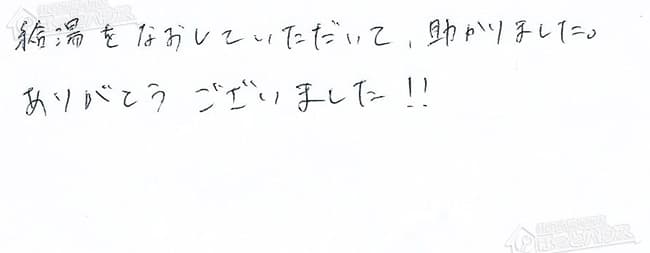 給湯をなおしていただいて、助かりました。
ありがとうございました!!